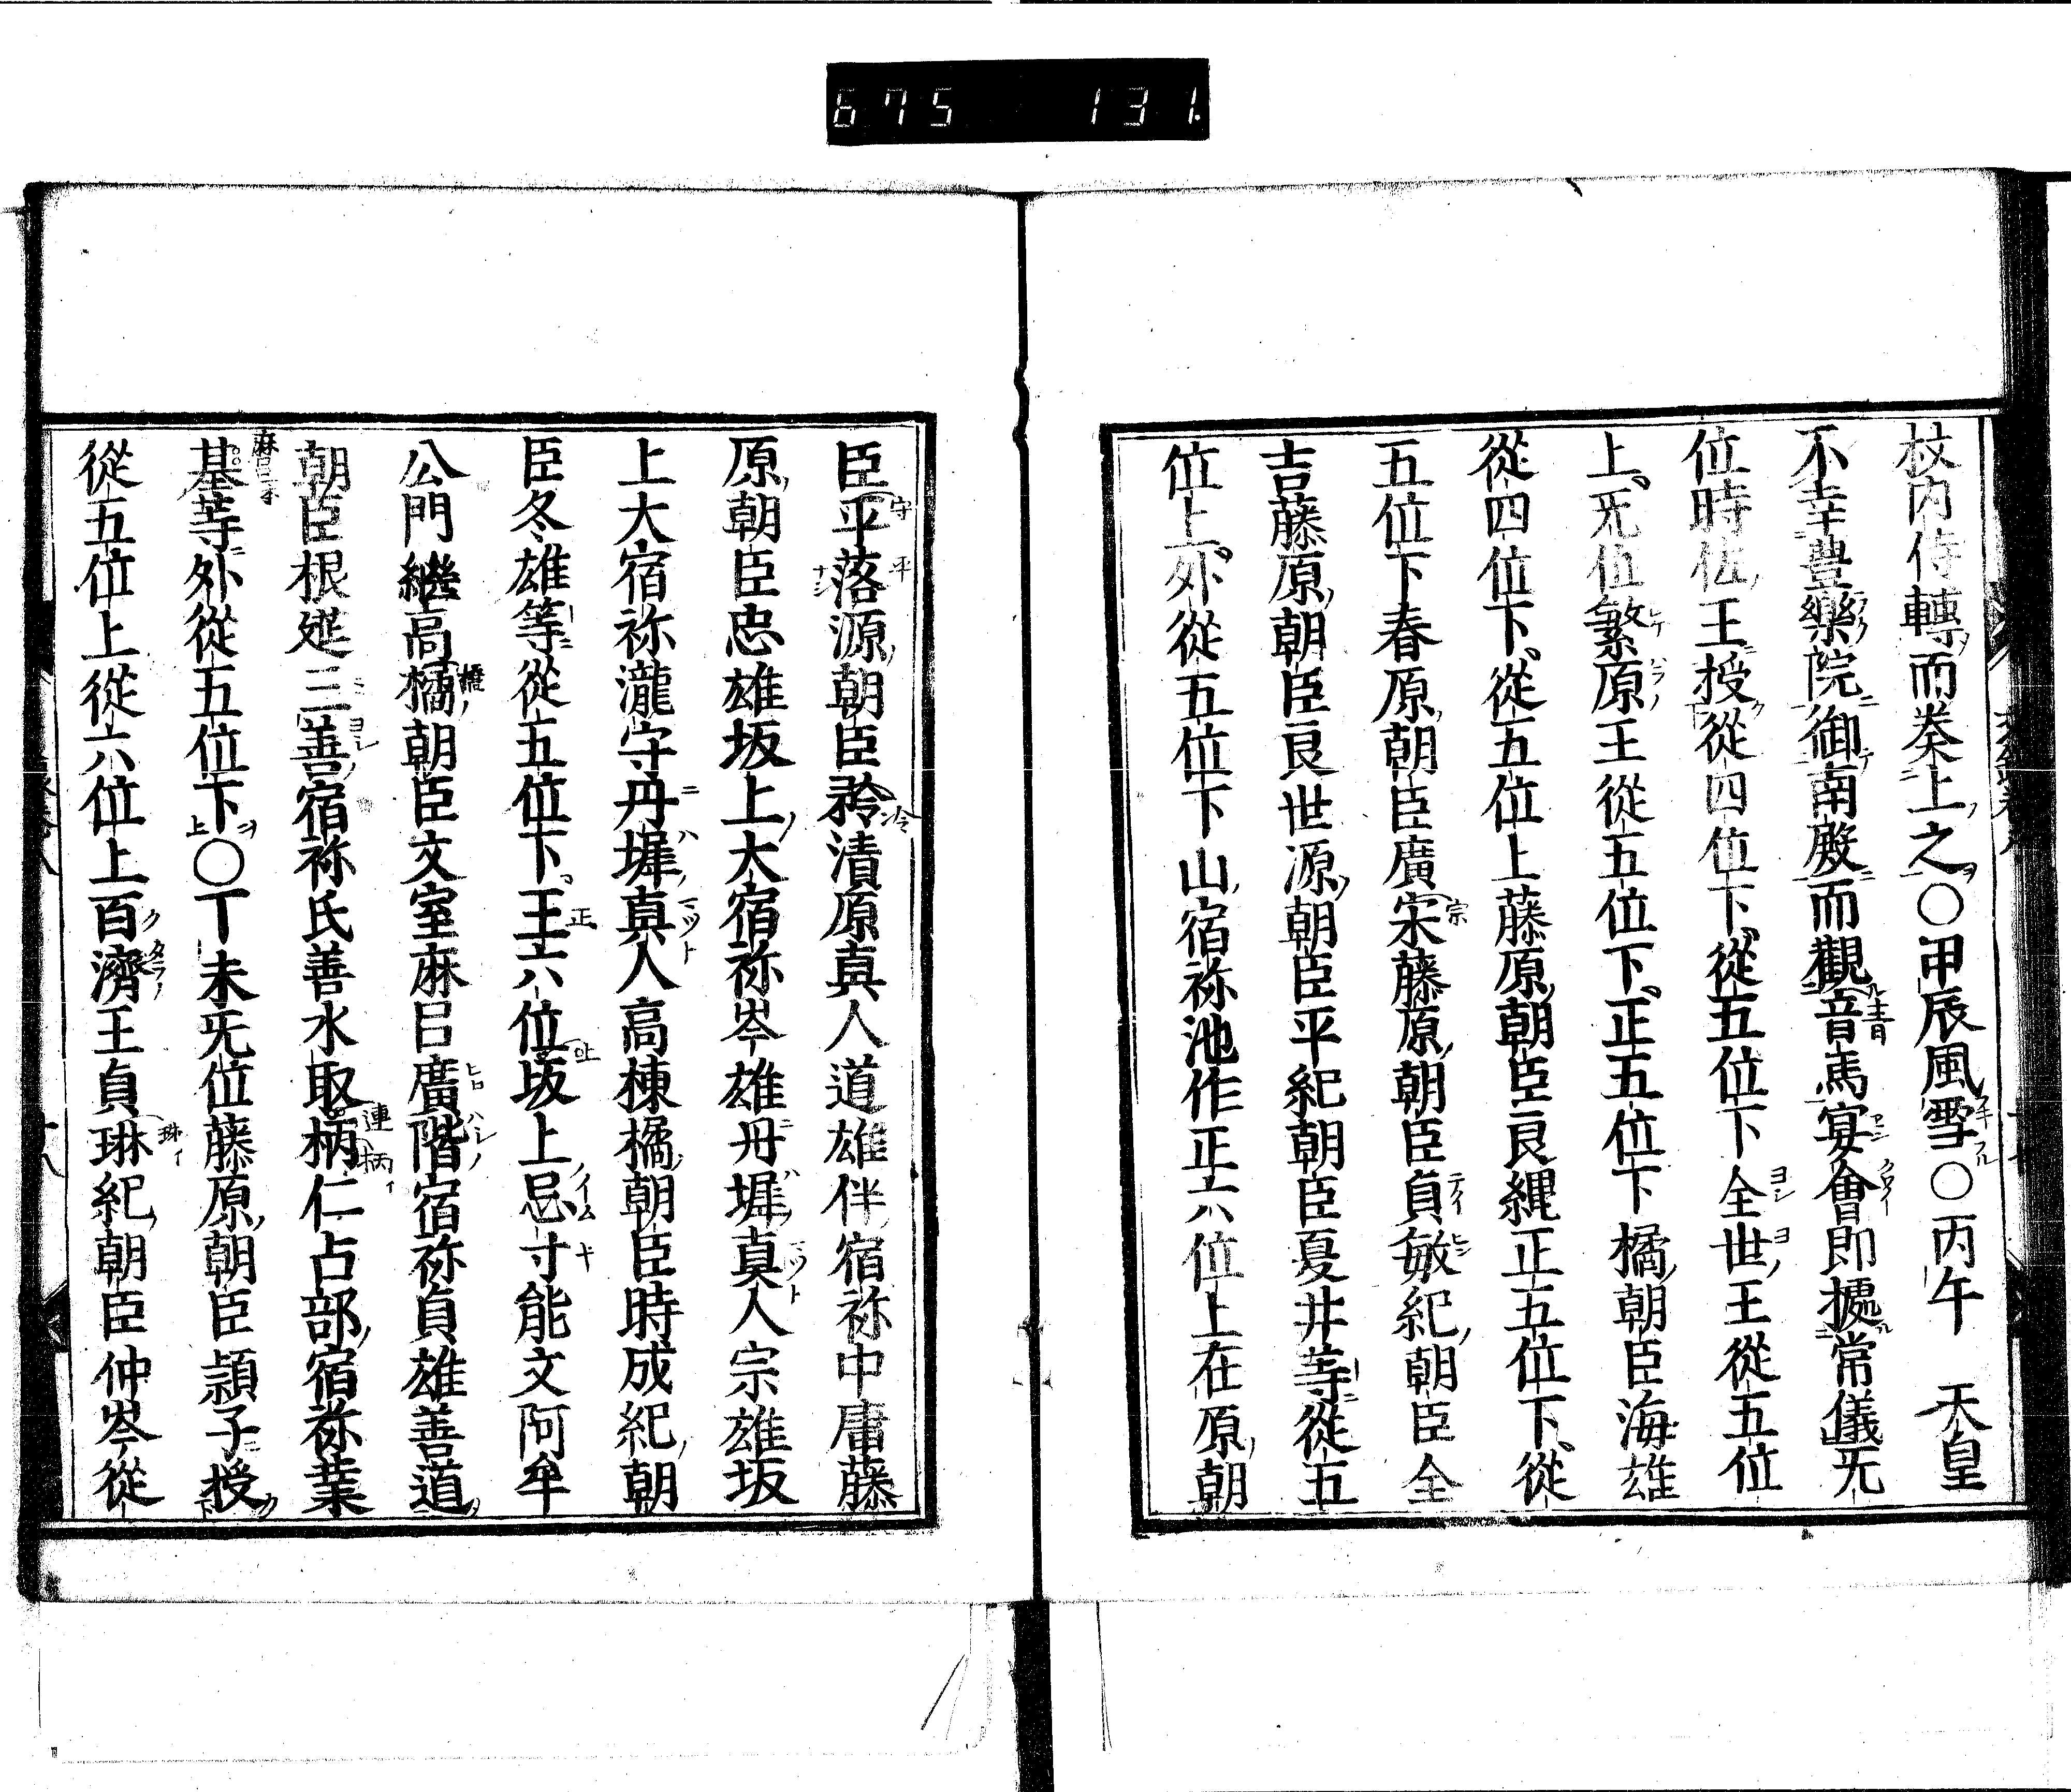 675 131.
杖内侍轉而奏上之〇甲辰風雪〇丙午　天皇
不幸豊樂院御南殿而觀音馬宴會即據常儀旡
位時佐王授從四位下從五位下全世王從五位
上旡位繁原王從五位下正五位下橘朝臣海雄
從四位下從五位上藤原朝臣良縄正五位下從
五位下春原朝臣廣宋藤原朝臣貞敏紀朝臣全
吉藤原朝臣良世源朝臣平紀朝臣夏井等從五
位上外從五位下山宿祢池作正六位上在原朝
臣平落源朝臣矜清原真人道雄伴宿祢中庸藤
原朝臣忠雄坂上大宿祢岑雄丹墀真人宗雄坂
上大宿祢瀧守丹墀真人高棟橘朝臣時成紀朝
臣冬雄等從五位下王六位坂上忌寸能文阿牟
公門繼高橘朝臣文室麻呂廣階宿祢貞雄善道
朝臣根莚三善宿祢氏善水取柄仁占部宿祢業
基等外從五位下〇丁未旡位藤原朝臣頴子授
從五位上從六位上百濟王貞琳紀朝臣仲岑從